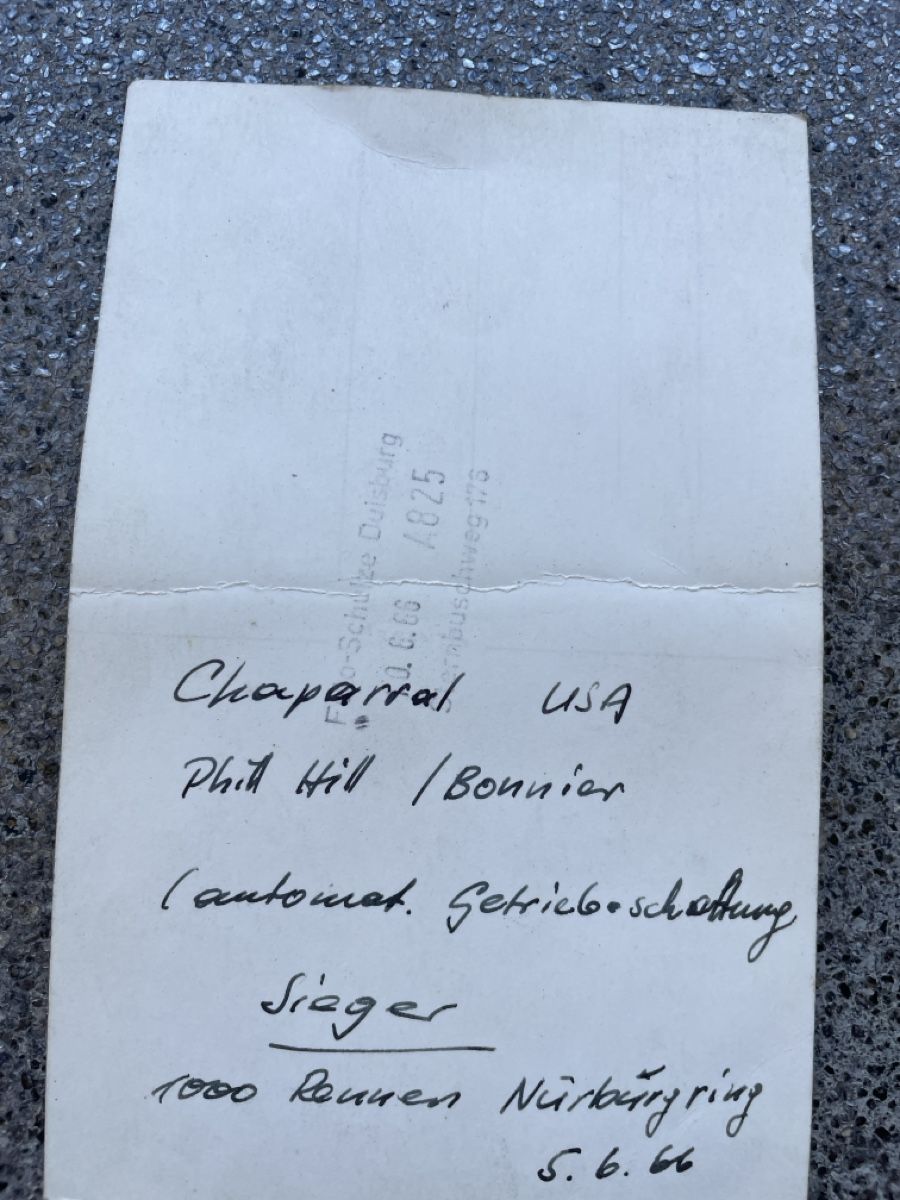 Schulze Duisburg
0.6.66 A825
buschweg 176
Chaparral USA
Phill Hill / Bonnier
(automat. Getriebeschaltung
Sieger
1000 Rennen Nürbürgring
5.6.66